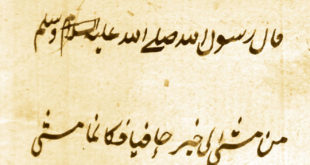 قال رسول الله صلى الله عليه السلام وسلم
من مشى الى خير حافيا فكانما مشى